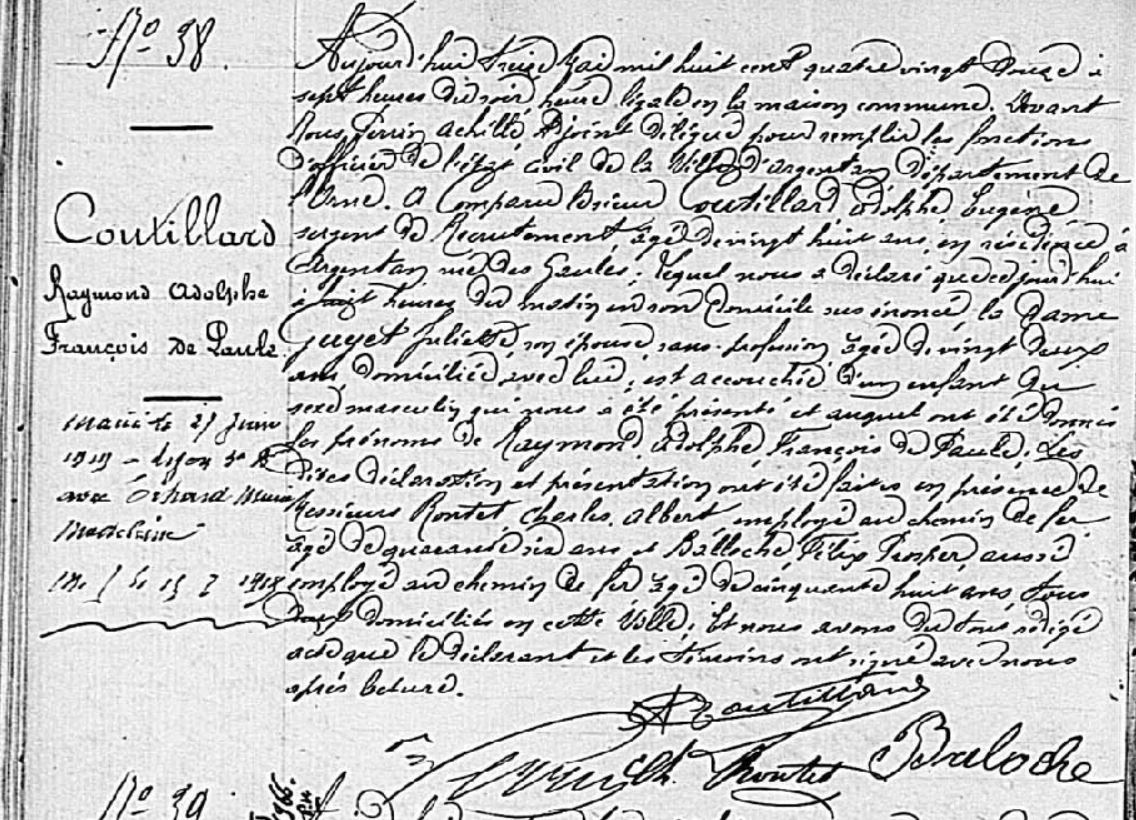 No 38.
Coutillard
Raymond Adolphe
François de Paule.
Marié le 25 Juin
1919 à Lyon 3e
avec Marie
Madeleine
Aujourd'hui treize mil huit cent quatre vingt douze à
sept heures du soir, heure légale en la maison commune. Devant
Nous, Perrin Achille, Adjoint délégué pour remplir les fonctions
d'officier de l'état civil de la Ville d'Argentan, département de
l'Orne. A Comparu Sieur Coutillard Adolphe Eugène
sergent de Recrutement, âgé de vingt huit ans, en résidence à
Argentan, rue des Gaules, lequel nous a déclaré que cejourd'hui
à huit heures du matin en son domicile sus énoncé, la Dame
Guyet Juliette son épouse sans profession, âgée de vingt deux
ans, domiciliée avec lui, est accouchée d'un enfant du
sexe masculin qui nous a été présenté et auquel ont été donnés
les prénoms de Raymond, Adolphe François de Paule. Les
dites déclaration et présentation ont été faites en présence de
Messieurs Rontet Charles, Albert, employé au chemin de fer
âgé de quarante six ans et Balloche Félix Prosper, aussi
employé au chemin de fer âgé de cinquante huit ans, tous
deux domiciliés en cette Ville; Et nous avons du tous rédigé
acte que le déclarant et les témoins ont signé avec nous
après lecture.
A Coutillard
Ch. Rontet
Baloche
No 39